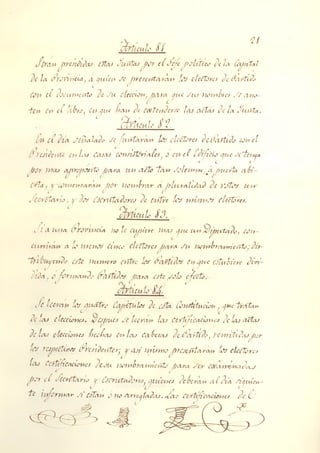 21
Articulo 81.
Seran presididas estas Juntas por el Gefe politico de la Capital
de la Provincia, a quien se presentarán los electores de Partido
con el documento de su eleccion, para que sus nombres se ano-
ten en el libro, en que han de extenderse las actas de la Junta.
Articulo 82.
En el dia señalado se juntarán los electores de Partido con el
Presidente en las casas consistoriales, o en el Edificio que se tenga
por mas aproposito para un acto tan solemne, á puerta abi-
erta, y comenzarán por nombrar á pluralidad de votos un
Secretario, y dos Escrutadores de entre los mismos electores.
Articulo 83.
Si a una Provincia no le cupiere mas que un Diputado, con-
currirán a lo menos cinco electores para su nombramiento; dis-
tribuyendo este numero entre los Partidos en que estubiere divi-
dida, ó formando Partidos para este solo efecto.
Articulo 84.
Se leerán los quatro Capitulos de esta Constitucion, que tratan
de las elecciones. Despues se leerán las certificaciones de las actas
de las elecciones hechas en las cabezas de Partido, remitidas por
los respectivos Presidentes; y asi mismo presentarán los electores
las certificaciones de su nombramiento para ser examinadas
por el Secretario y Escrutadores, quienes deberán al dia siguien-
te informar si estan o no arregladas. Las certificaciones de l